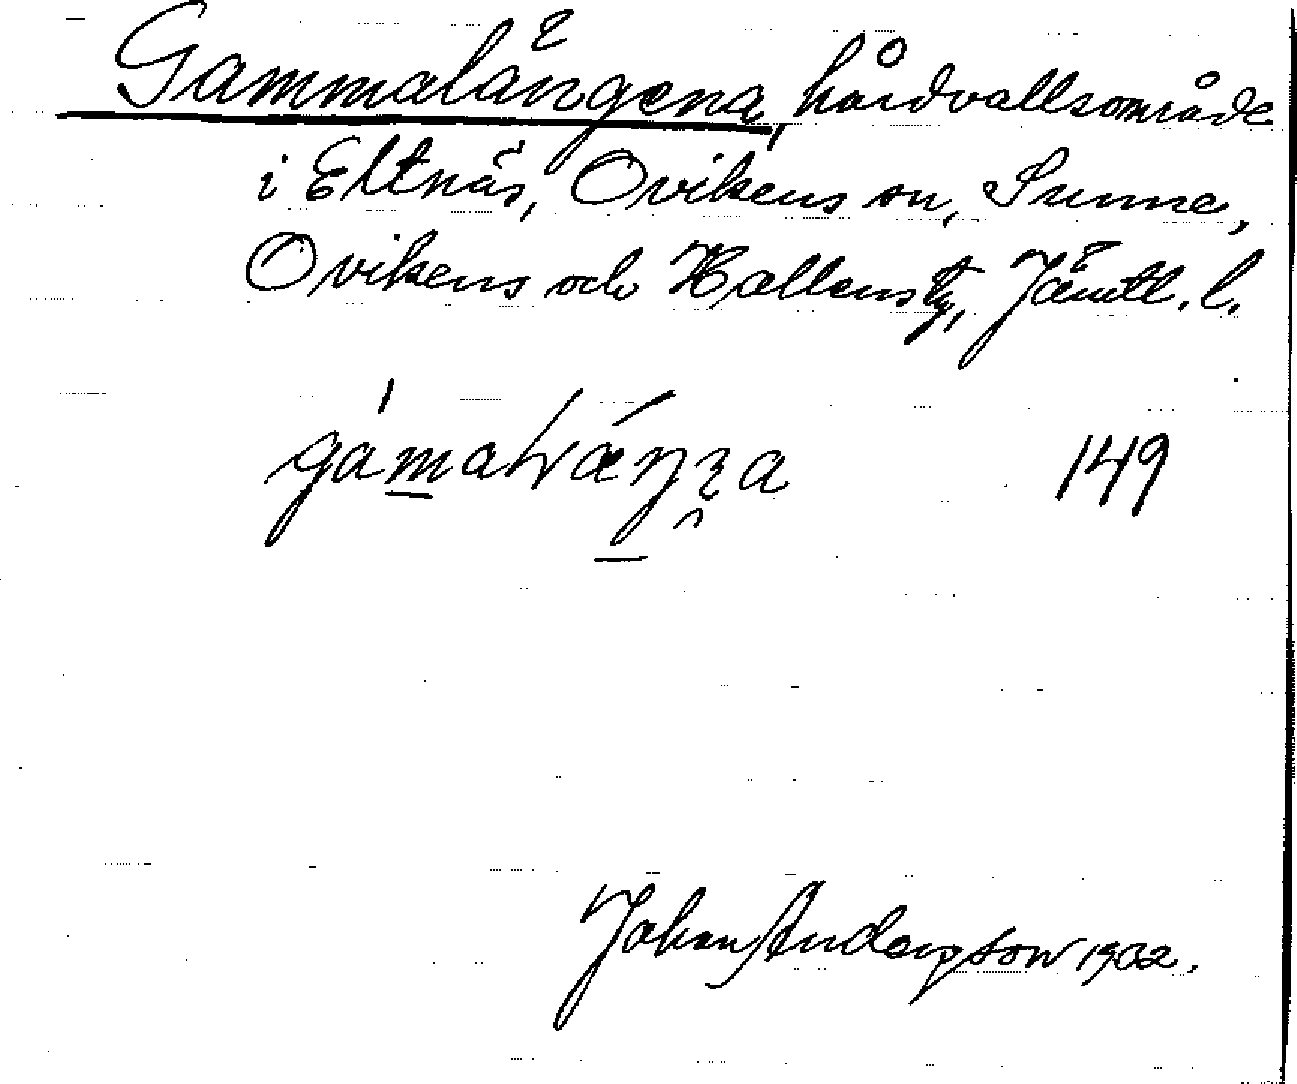 Gammalängena, hårdvallsområde
i Eltnäs, Ovikens sn, Sunne,
Ovikens och Hallens tg, Jämtl. l.
149
Johan Anderson 1902.